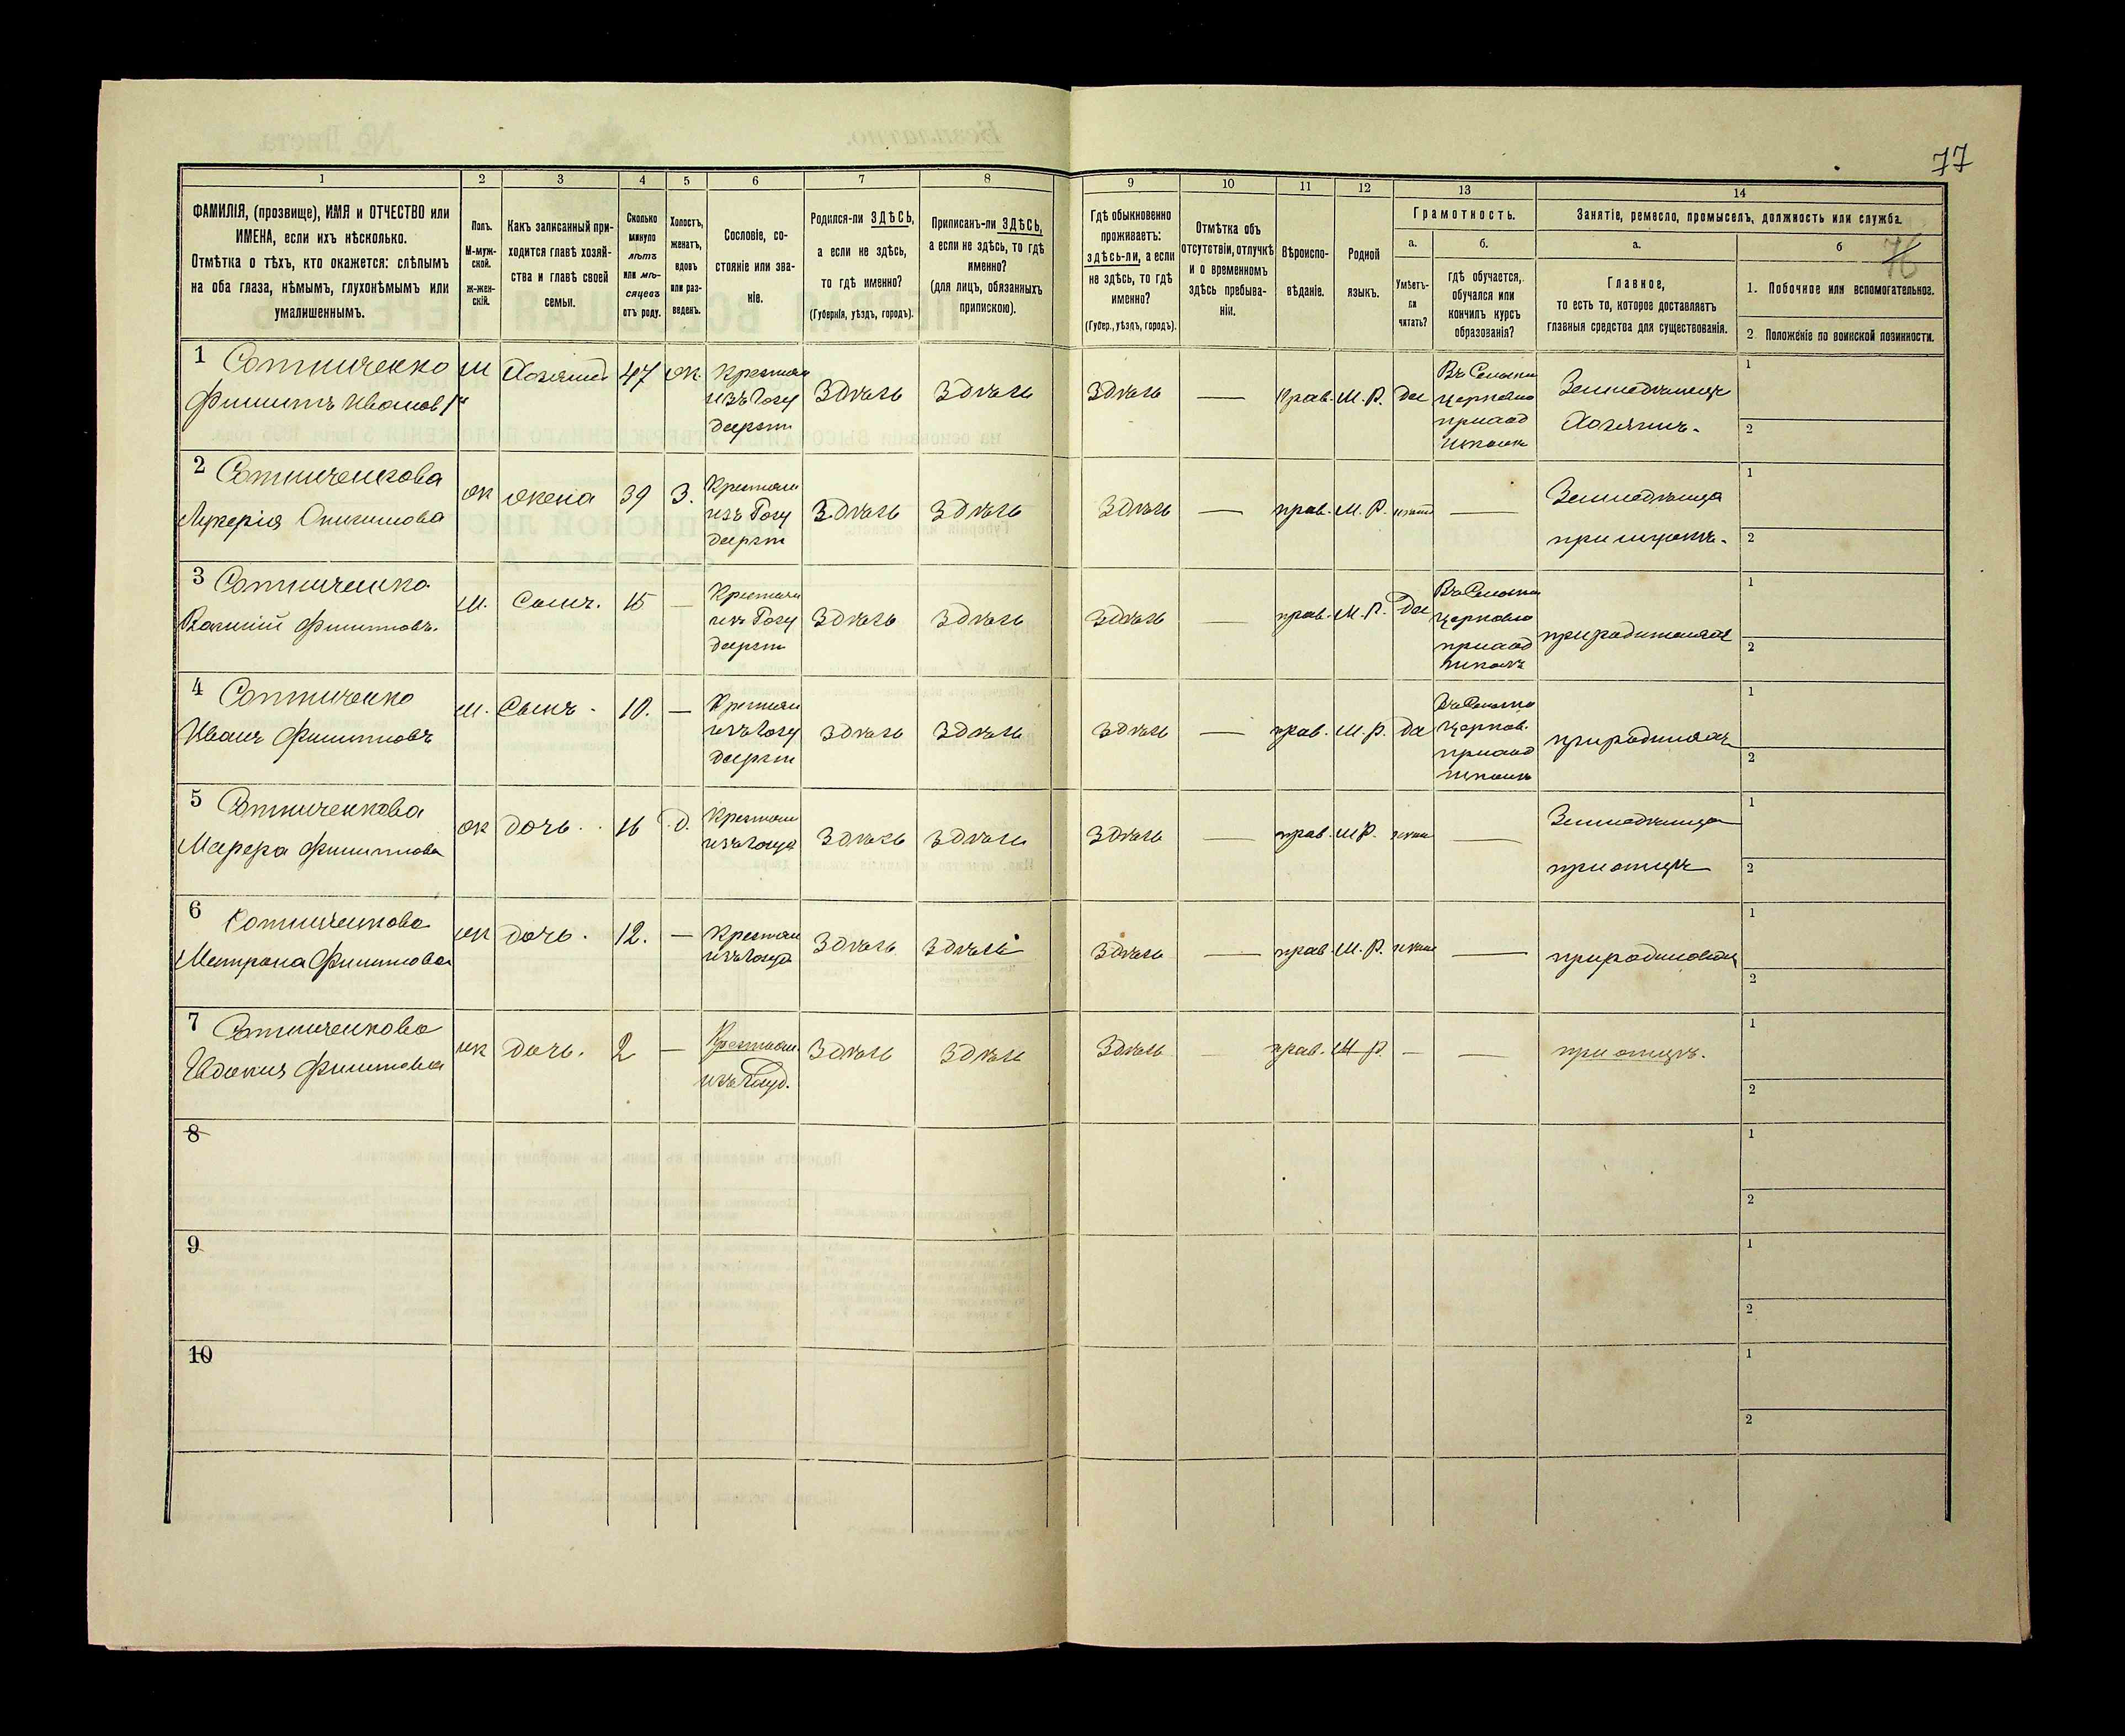 77
1 2 3 4 5 6 7 8 9 10 11 12 13 14
ФАМИЛІЯ, (прозвище), ИМЯ и ОТЧЕСТВО или
ИМЕНА, если ихъ нѣсколько.
Отмѣтка о тѣхъ, кто окажется: слѣпымъ
на оба глаза, нѣмымъ, глухонѣмымъ или
умалишеннымъ.
Полъ.
М-муж-
ской.
ж-жен-
скій.
Какъ записанный при-
ходится главѣ хозяй-
ства и главѣ своей
семьи.
Сколько
минуло
лѣтъ
или мѣ-
сяцевъ
отъ роду.
Холостъ,
женатъ,
вдовъ
или раз-
веденъ.
Сословіе, со-
стояніе или зва-
ніе.
Родился-ли ЗДѢСЬ,
а если не здѣсь,
то гдѣ именно?
(Губернія, уѣздъ, городъ).
Приписанъ-ли ЗДѢСЬ,
а если не здѣсь, то гдѣ
именно?
(для лицъ, обязанныхъ
припискою).
Гдѣ обыкновенно
проживаетъ:
здѣсь-ли, а если
не здѣсь, то гдѣ
именно?
(Губер., уѣздъ, городъ).
Отмѣтка объ
отсутствіи, отлучкѣ
и о временномъ
здѣсь пребыва-
ніи.
Вѣроиспо-
вѣданіе.
Родной
языкъ.
Грамотность.
а.
Умѣетъ-
ли
читать?
б.
гдѣ обучается,
обучался или
кончилъ курсъ
образованія?
Занятіе, ремесло, промыселъ, должность или служба.
а.
Главное,
то есть то, которое доставляетъ
главныя средства для существованія.
б
76
1. Побочное или вспомогательное.
2 Положеніе по воинской повинности.
1 Сотниченко М Хозяинъ 47 Ж. Крестьян
Филипъ Иванов изъ Госу Здѣсь Здѣсь Здѣсь — Прав. М. Р. да
дарст
Въ Сельской
церковно
приход
школѣ
Земледѣлецъ
Хозяинъ.
1
2
2 Сотниченкова Ж жена 39 З. Крестьян
Лукерія изъ Госу Здѣсь Здѣсь Здѣсь — прав. М. Р. —
дарст
Земледѣлица
при мужѣ.
1
2
3 Сотниченко М. Сынъ. 15 — Крестьян
Василій Филиповъ. изъ Госу Здѣсь Здѣсь Здѣсь — прав. М. Р. Да
дарст
Въ Сельской
церковно
приход
школѣ
при родителях
1
2
4 Сотниченко М. Сынъ. 10. — Крестьян
Иванъ Филиповъ изъ Госу Здѣсь Здѣсь Здѣсь — прав. М. Р. Да
дарст
Въ Сельско
церков.
приход
школѣ
при родителях
1
2
5 Сотниченкова Ж дочь. 16 Д. Крестьян
Марфа Филипова изъ Госуд Здѣсь Здѣсь Здѣсь — прав. М Р. —
Земледѣлица
при отцѣ
1
2
6 Сотниченкова Ж дочь. 12. — Крестьян
Матрона Филипова изъ Госуд Здѣсь Здѣсь Здѣсь — прав. М. Р. — при родителях
1
2
7 Сотниченкова Ж дочь. 2 — Крестьян.
Евдокия Филипова изъ Госуд. Здѣсь Здѣсь Здѣсь — прав. М. Р. — — при отцѣ.
1
2
8
1
2
9
1
2
10
1
2